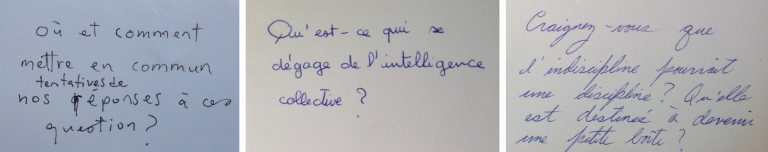 Où et comment
mettre en commun
tentatives de
nos réponses à ces
question?
Qu'est-ce qui se
dégage de l'intelligence
collective?
Craignez-vous que
l'indiscipline pourrait
une discipline? Qu'elle
est destinée à devenir
une petite boîte?